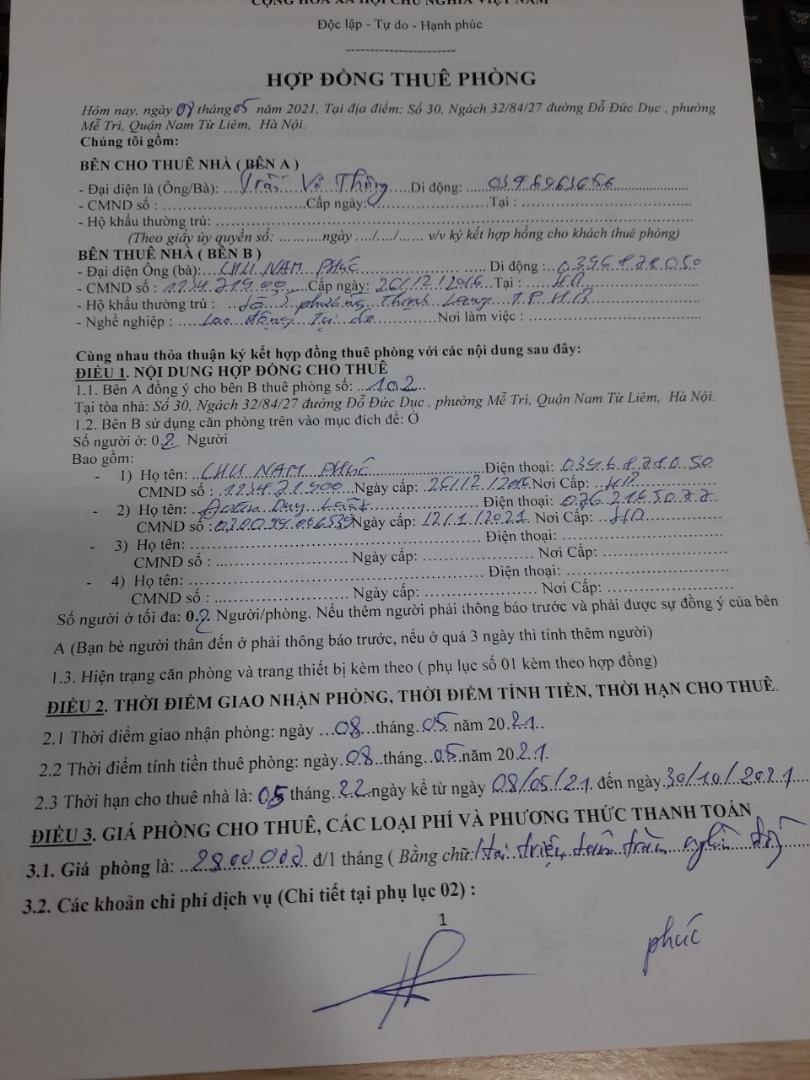 CỘNG HÒA XÃ HỘI CHỦ NGHĨA VIỆT NAM
Độc lập - Tự do - Hạnh phúc
------------------------
HỢP ĐỒNG THUÊ PHÒNG
Hôm nay, ngày 08 tháng 05 năm 2021, Tại địa điểm: Số 30, Ngách 32/84/27 đường Đỗ Đức Dục , phường
Mễ Trì, Quận Nam Từ Liêm, Hà Nội.
Chúng tôi gồm:
BÊN CHO THUÊ NHÀ ( BÊN A )
- Đại diện là (Ông/Bà): ....Trần Võ Thắng.....Di động: ....0396863656....
- CMND số : ..............................Cấp ngày:..........................Tại : ................................
- Hộ khẩu thường trú: ................................................................................
(Theo giấy ủy quyền số: ............ngày ..../..../...... v/v ký kết hợp hồng cho khách thuê phòng)
BÊN THUÊ NHÀ ( BÊN B )
- Đại diện Ông (bà):....CHU NAM PHÚC............ Di động :..0346821050
- CMND số : 113421900.....Cấp ngày: 26/12/2016...Tại : ....HB....
- Hộ khẩu thường trú : ...tổ 3 phường Thịnh Lang T.P HB
- Nghề nghiệp : ....Lao động Tự do............Nơi làm việc : ................................
Cùng nhau thỏa thuận ký kết hợp đồng thuê phòng với các nội dung sau đây:
ĐIỀU 1. NỘI DUNG HỢP ĐỒNG CHO THUÊ
1.1. Bên A đồng ý cho bên B thuê phòng số: ...102...
Tại tòa nhà: Số 30, Ngách 32/84/27 đường Đỗ Đức Dục , phường Mễ Trì, Quận Nam Từ Liêm, Hà Nội.
1.2. Bên B sử dụng căn phòng trên vào mục đích để: Ở
Số người ở: 02 Người
Bao gồm:
- 1) Họ tên: ..CHU NAM PHÚC............Điện thoại: 0346821050
CMND số : 113421900...Ngày cấp: 26/12/2016 Nơi Cấp: ..HB
- 2) Họ tên: ... Duy ............ Điện thoại: 0762165077
CMND số : Ngày cấp: 12/1/2021 Nơi Cấp: ..HD
- 3) Họ tên: ................................................ Điện thoại: ..........................
CMND số : .................... Ngày cấp: .................... Nơi Cấp: ....................
- 4) Họ tên: ................................................ Điện thoại: ..........................
CMND số : .................... Ngày cấp: .................... Nơi Cấp: ....................
Số người ở tối đa: 0.2 Người/phòng. Nếu thêm người phải thông báo trước và phải được sự đồng ý của bên
A (Bạn bè người thân đến ở phải thông báo trước, nếu ở quá 3 ngày thì tính thêm người)
1.3. Hiện trạng căn phòng và trang thiết bị kèm theo ( phụ lục số 01 kèm theo hợp đồng)
ĐIỀU 2. THỜI ĐIỂM GIAO NHẬN PHÒNG, THỜI ĐIỂM TÍNH TIỀN, THỜI HẠN CHO THUÊ.
2.1 Thời điểm giao nhận phòng: ngày ...08...tháng.05 năm 20.21..
2.2 Thời điểm tính tiền thuê phòng: ngày.08...tháng..05.năm 20.21.
2.3 Thời hạn cho thuê nhà là: 05 tháng.22.ngày kể từ ngày 08/05/21. đến ngày 30/10/2021
ĐIỀU 3. GIÁ PHÒNG CHO THUÊ, CÁC LOẠI PHÍ VÀ PHƯƠNG THỨC THANH TOÁN
3.1. Giá phòng là: ..2800000.. đ/1 tháng ( Bằng chữ: Hai triệu tám trăm nghìn đồng
3.2. Các khoản chi phí dịch vụ (Chi tiết tại phụ lục 02) :
1
phúc